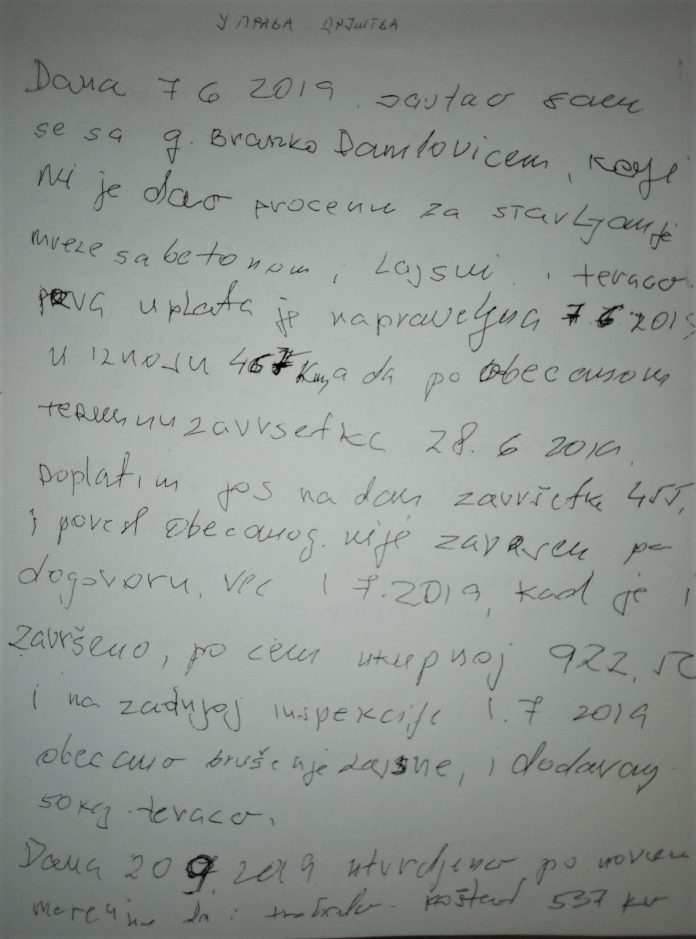 УПРАВА ДРУШТВА
Dana 7.6 2019. sastao sam
se sa g. Branko Damlovicem, koji
mi je dao procenu za stavljanje
mreze sa betonom, i Lajsni i teraco
prva uplata je napravljena 7 6 2019
u iznosu 467 Km, a da po obecanom
terminu zavrsetka 28. 6 2019.
Doplatim jos na dan završetka 455,
i pored obecanog. nije zavrsen po
dogovoru. vec 1 7. 2019, kad je i
završeno, po cem ukupnoj 922,
i na zadnjoj inspekcije 1.7 2019
obecano brušenje lajsne, i dodavanj
50 kg. teraco.
Dana 20 9. 2019 utvrdjeno po novom
da i koštad 537 kv